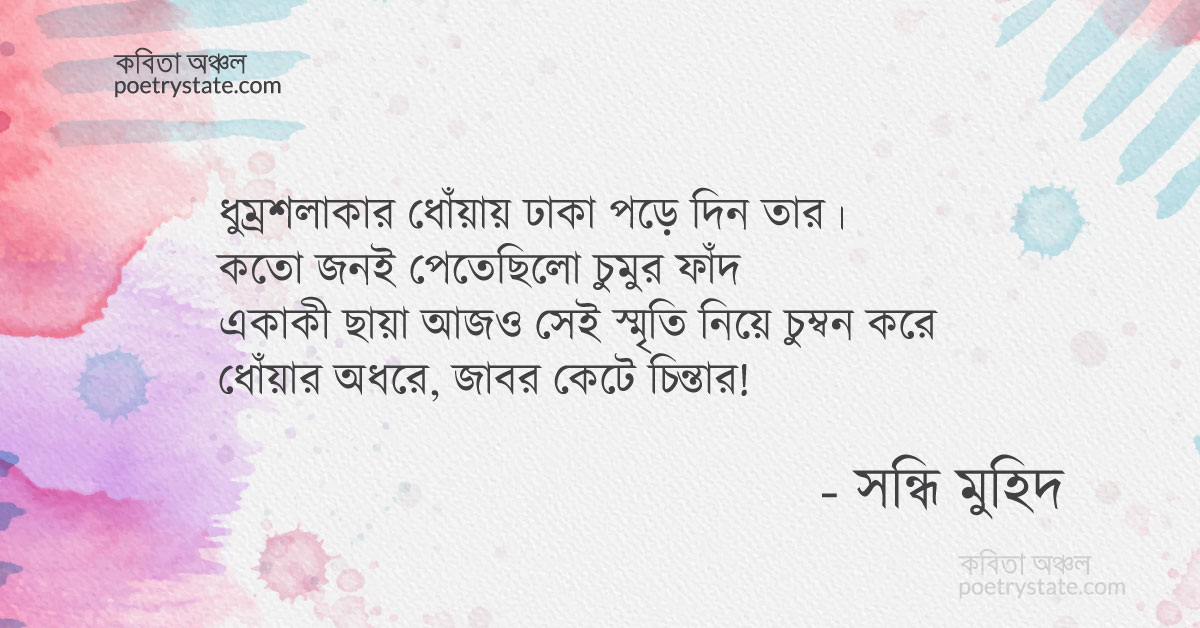 কবিতা অঞ্চল
poetrystate.com
ধুম্রশলাকার ধোঁয়ায় ঢাকা পড়ে দিন তার।
কতো জনই পেতেছিলো চুমুর ফাঁদ
একাকী ছায়া আজও সেই স্মৃতি নিয়ে চুম্বন করে
ধোঁয়ার অধরে, জাবর কেটে চিন্তার!
- সন্ধি মুহিদ
কবিতা অঞ্চল
poetrystate.com